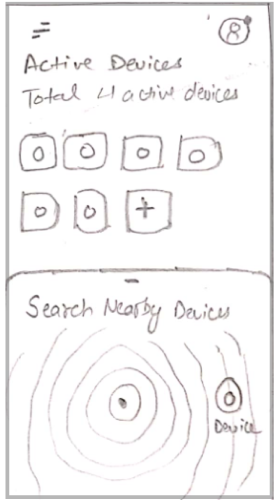 Active Devices
Total 4 active devices
Search Nearby Devices
Device